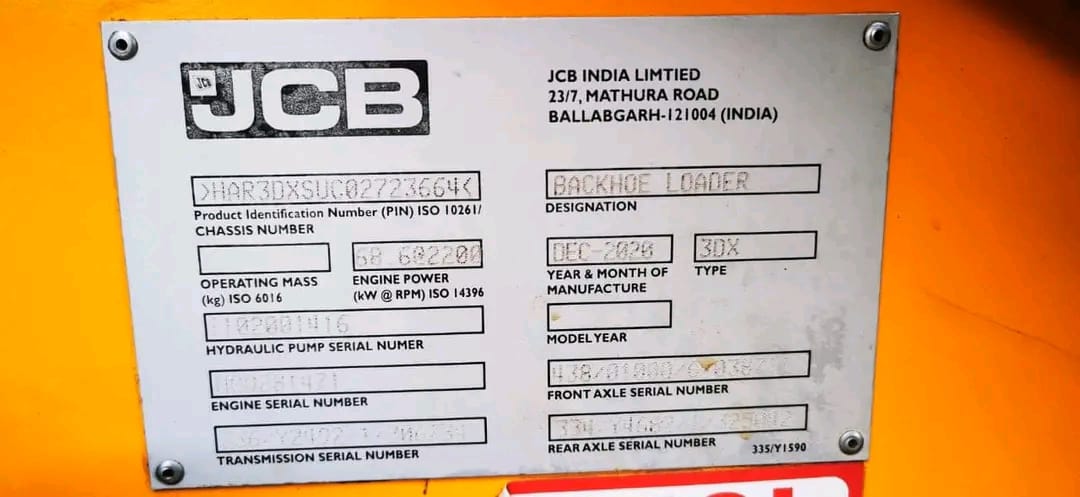 JCB
JCB INDIA LIMTIED
23/7, MATHURA ROAD
BALLABGARH-121004 (INDIA)
>HAR3DXSUC02723664<
Product Identification Number (PIN) ISO 10261/
CHASSIS NUMBER
BACKHOE LOADER
DESIGNATION
OPERATING MASS
(kg) ISO 6016
68.6@2200
ENGINE POWER
(kW @ RPM) ISO 14396
DEC-2020
YEAR & MONTH OF
MANUFACTURE
3DX
TYPE
HYDRAULIC PUMP SERIAL NUMER
MODEL YEAR
ENGINE SERIAL NUMBER
FRONT AXLE SERIAL NUMBER
TRANSMISSION SERIAL NUMBER
REAR AXLE SERIAL NUMBER
335/Y1590